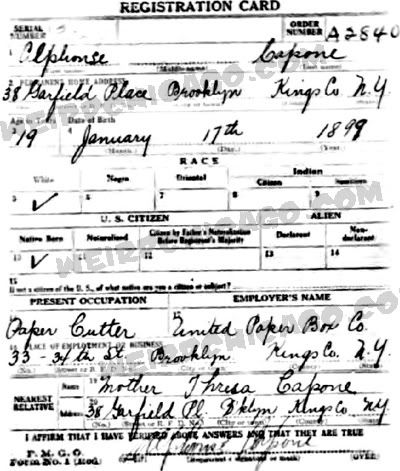 REGISTRATION CARD
SERIAL NUMBER
ORDER NUMBER A2840
1 Alphonse Capone
(Middle name) (Last name)
2 PERMANENT HOME ADDRESS
38 Garfield Place Brooklyn Kings Co. N.Y.
Age in Years Date of Birth
19 January 17th 1899
(Month.) (Day.) (Year.)
RACE
White Negro Oriental Indian
Citizen Noncitizen
5 ✓ 6 7 8 9
U. S. CITIZEN ALIEN
Native Born Naturalized Citizen by Father's Naturalization Before Registrant's Majority Declarant Non-declarant
10 ✓ 11 12 13 14
15 If not a citizen of the U. S., of what nation are you a citizen or subject?
PRESENT OCCUPATION EMPLOYER'S NAME
Paper Cutter United Paper Box Co.
PLACE OF EMPLOYMENT OR BUSINESS
33 - 34th St. Brooklyn Kings Co. N.Y.
NEAREST RELATIVE
Name 19 Mother Thresa Capone
Address 20 38 Garfield Pl. Bklyn Kings Co NY
(No.) (Street or R. F. D. No.) (City or town) (County) (State)
I AFFIRM THAT I HAVE VERIFIED ABOVE ANSWERS AND THAT THEY ARE TRUE
P. M. G. O.
Form No. 1 (Red)
Alphonse Capone
(Registrant's signature or mark) (OVER)
WEIRDCHICAGO.COM